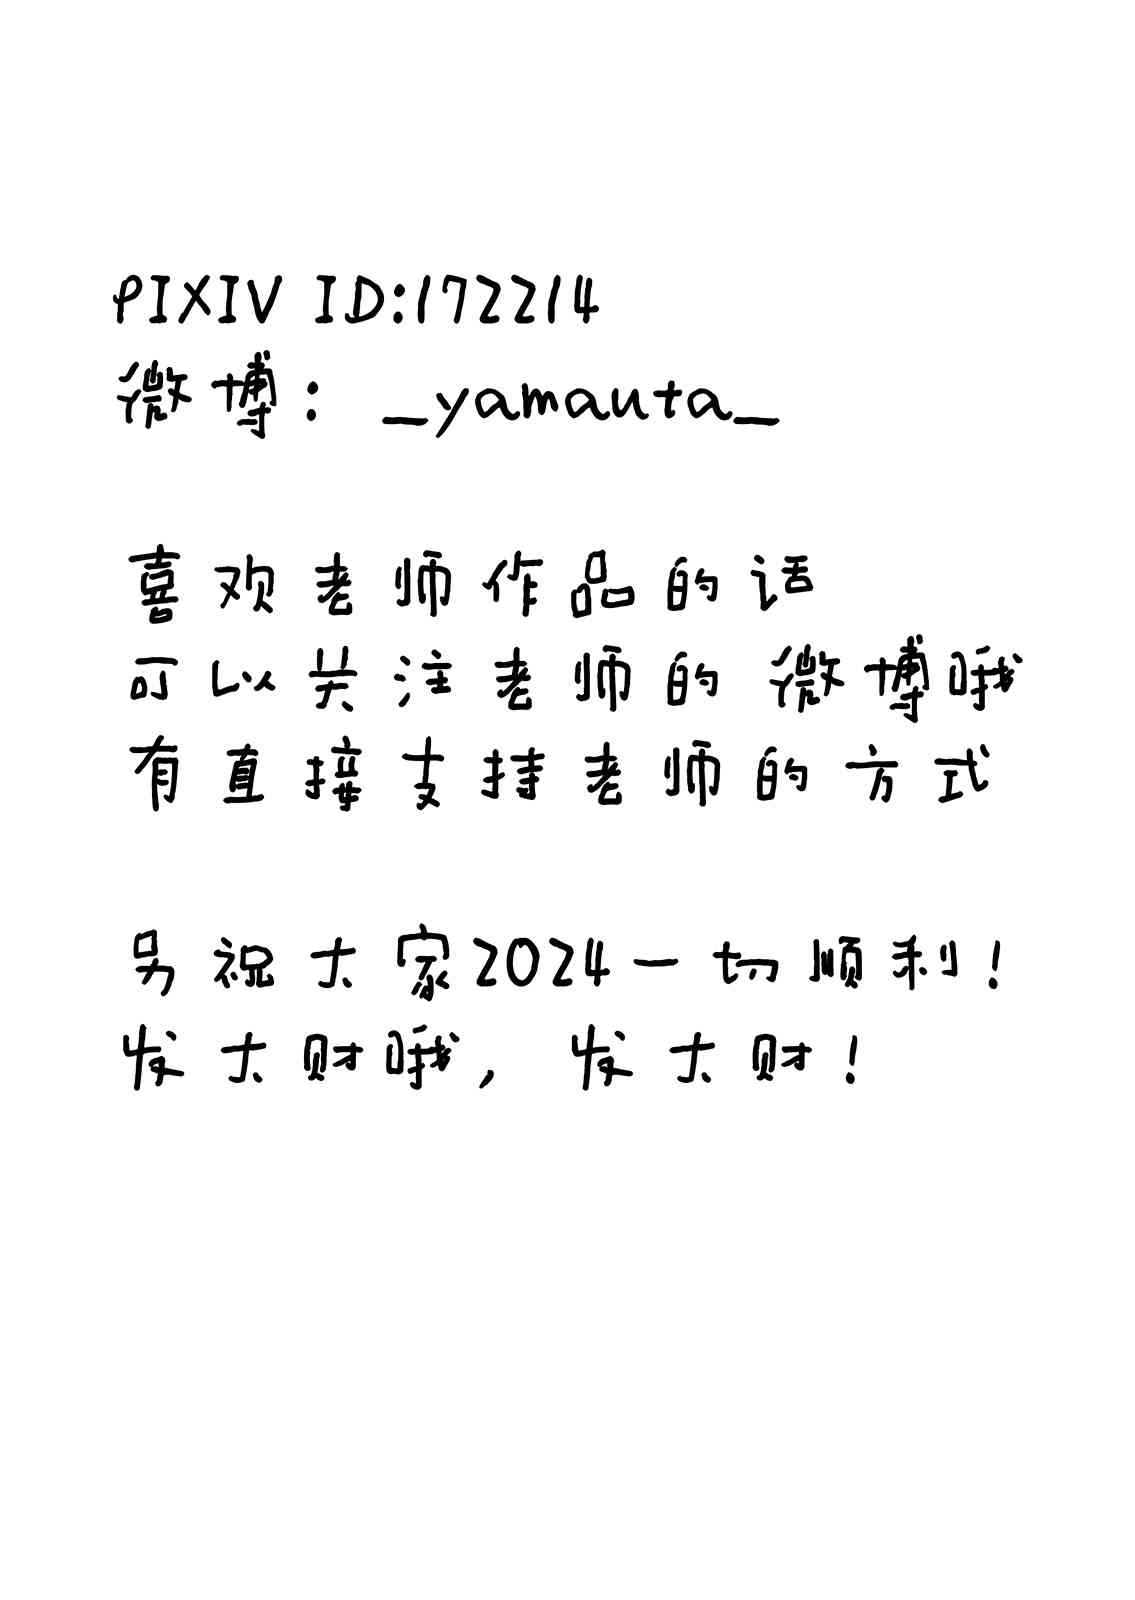 PIXIV ID:172214
微博：_yamauta_
喜欢老师作品的话
可以关注老师的微博哦
有直接支持老师的方式
另祝大家2024一切顺利！
发大财哦，发大财！